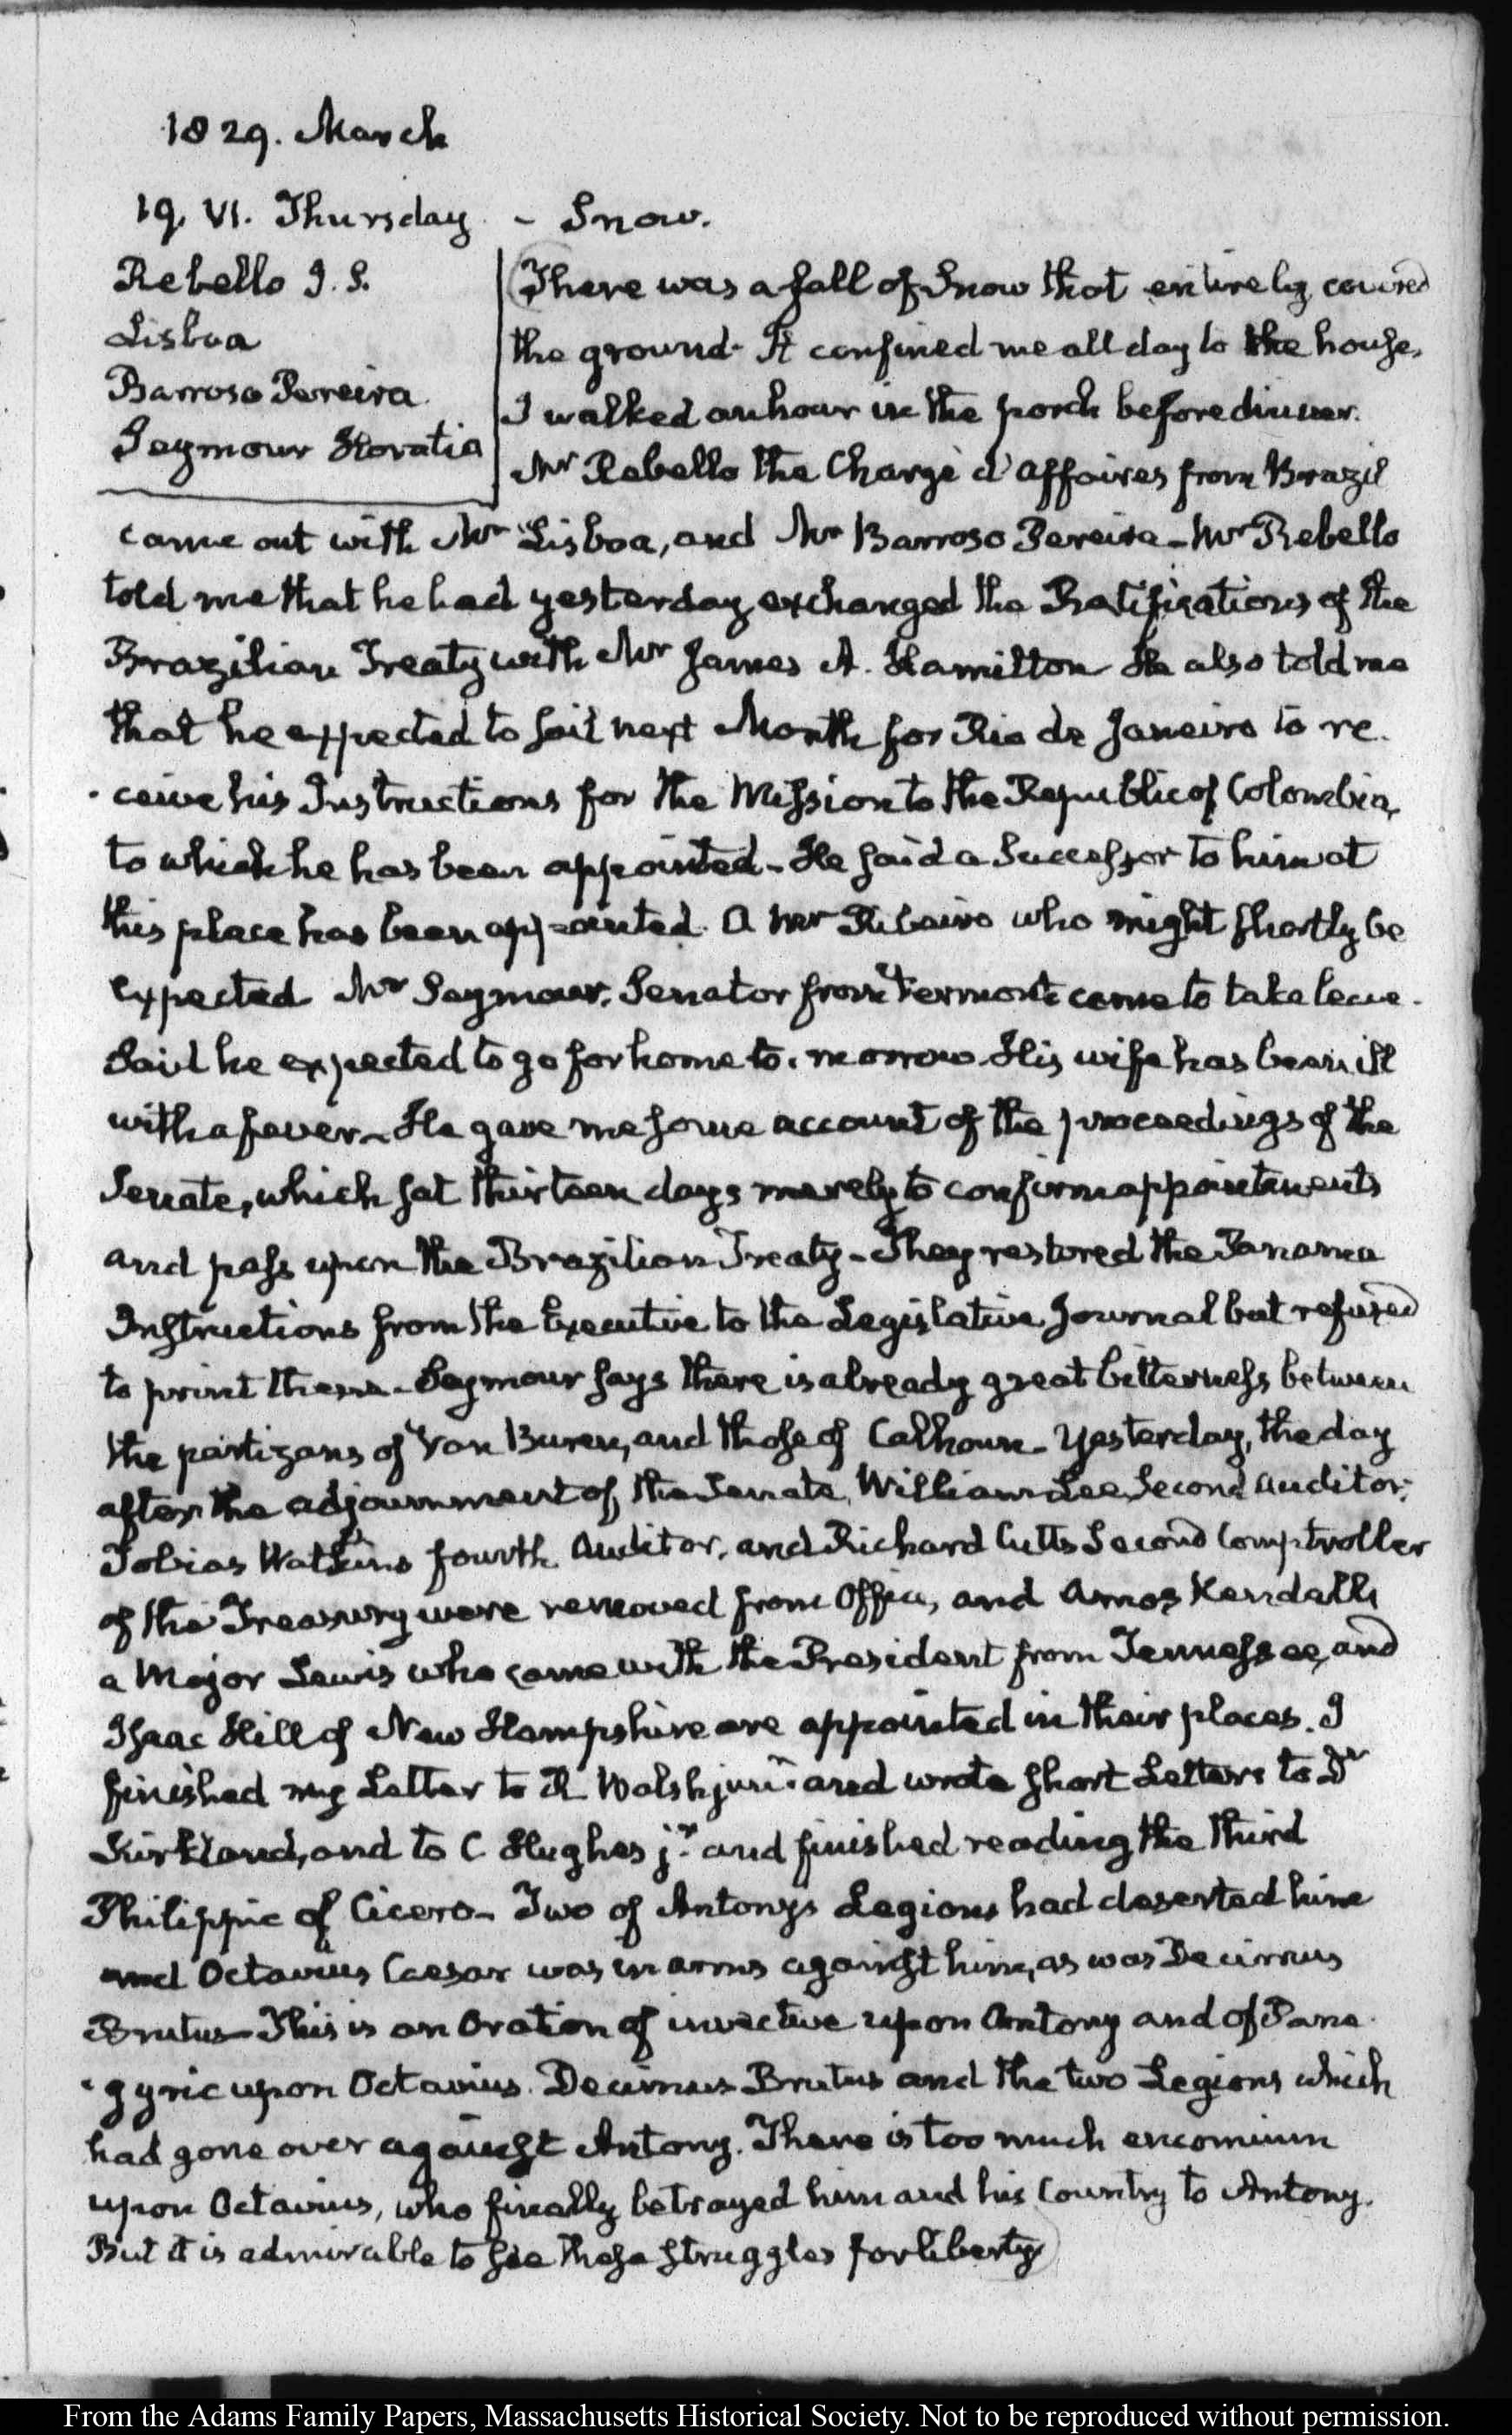 1829. March
19. VI. Thursday. - Snow.
Rebello J. S.
Lisboa
Barroso Pereira.
Seymour Horatio
There was a fall of Snow that entirely covered
the ground. It confined me all day to the house,
I walked an hour in the porch before dinner.
Mr Rebello the Chargé d'affaires from Brazil
came out with Mr Lisboa, and Mr Barroso Pereira - Mr Rebello
told me that he had yesterday exchanged the Ratifications of the
Brazilian Treaty with Mr James A. Hamilton He also told me
that he expected to sail next Month for Rio de Janeiro to re-
-ceive his Instructions for the Mission to the Republic of Colombia,
to which he has been appointed - He said a Successor to him at
this place has been appointed. A Mr Ribeiro who might shortly be
expected Mr Seymour, Senator from Vermont came to take leave.
Said he expected to go for home to-morrow. His wife has been ill
with a fever - He gave me some account of the proceedings of the
Senate, which sat thirteen days merely to confirm appointments
and pass upon the Brazilian Treaty - They restored the Panama
Instructions from the Executive to the Legislative Journal but refused
to print them - Seymour says there is already great bitterness between
the partizans of Van Buren, and those of Calhoun - Yesterday, the day
after the adjournment of the Senate, William Lee Second Auditor,
Tobias Watkins fourth Auditor, and Richard Cutts Second Comptroller
of the Treasury were removed from Office, and Amos Kendall,
a Major Lewis who came with the President from Tennessee, and
Isaac Hill of New Hampshire are appointed in their places. I
finished my Letter to R Walsh junr. and wrote short Letters to Dr
Kirkland, and to C Hughes jr. and finished reading the third
Philippic of Cicero - Two of Antonys Legions had deserted him
and Octavius Caesar was in arms against him, as was Decimus
Brutus - This is an Oration of invective upon Antony and of Pane-
-gyric upon Octavius. Decimus Brutus and the two Legions which
had gone over against Antony. There is too much encomium
upon Octavius, who finally betrayed him and his Country to Antony.
But it is admirable to see these struggles for liberty
From the Adams Family Papers, Massachusetts Historical Society. Not to be reproduced without permission.